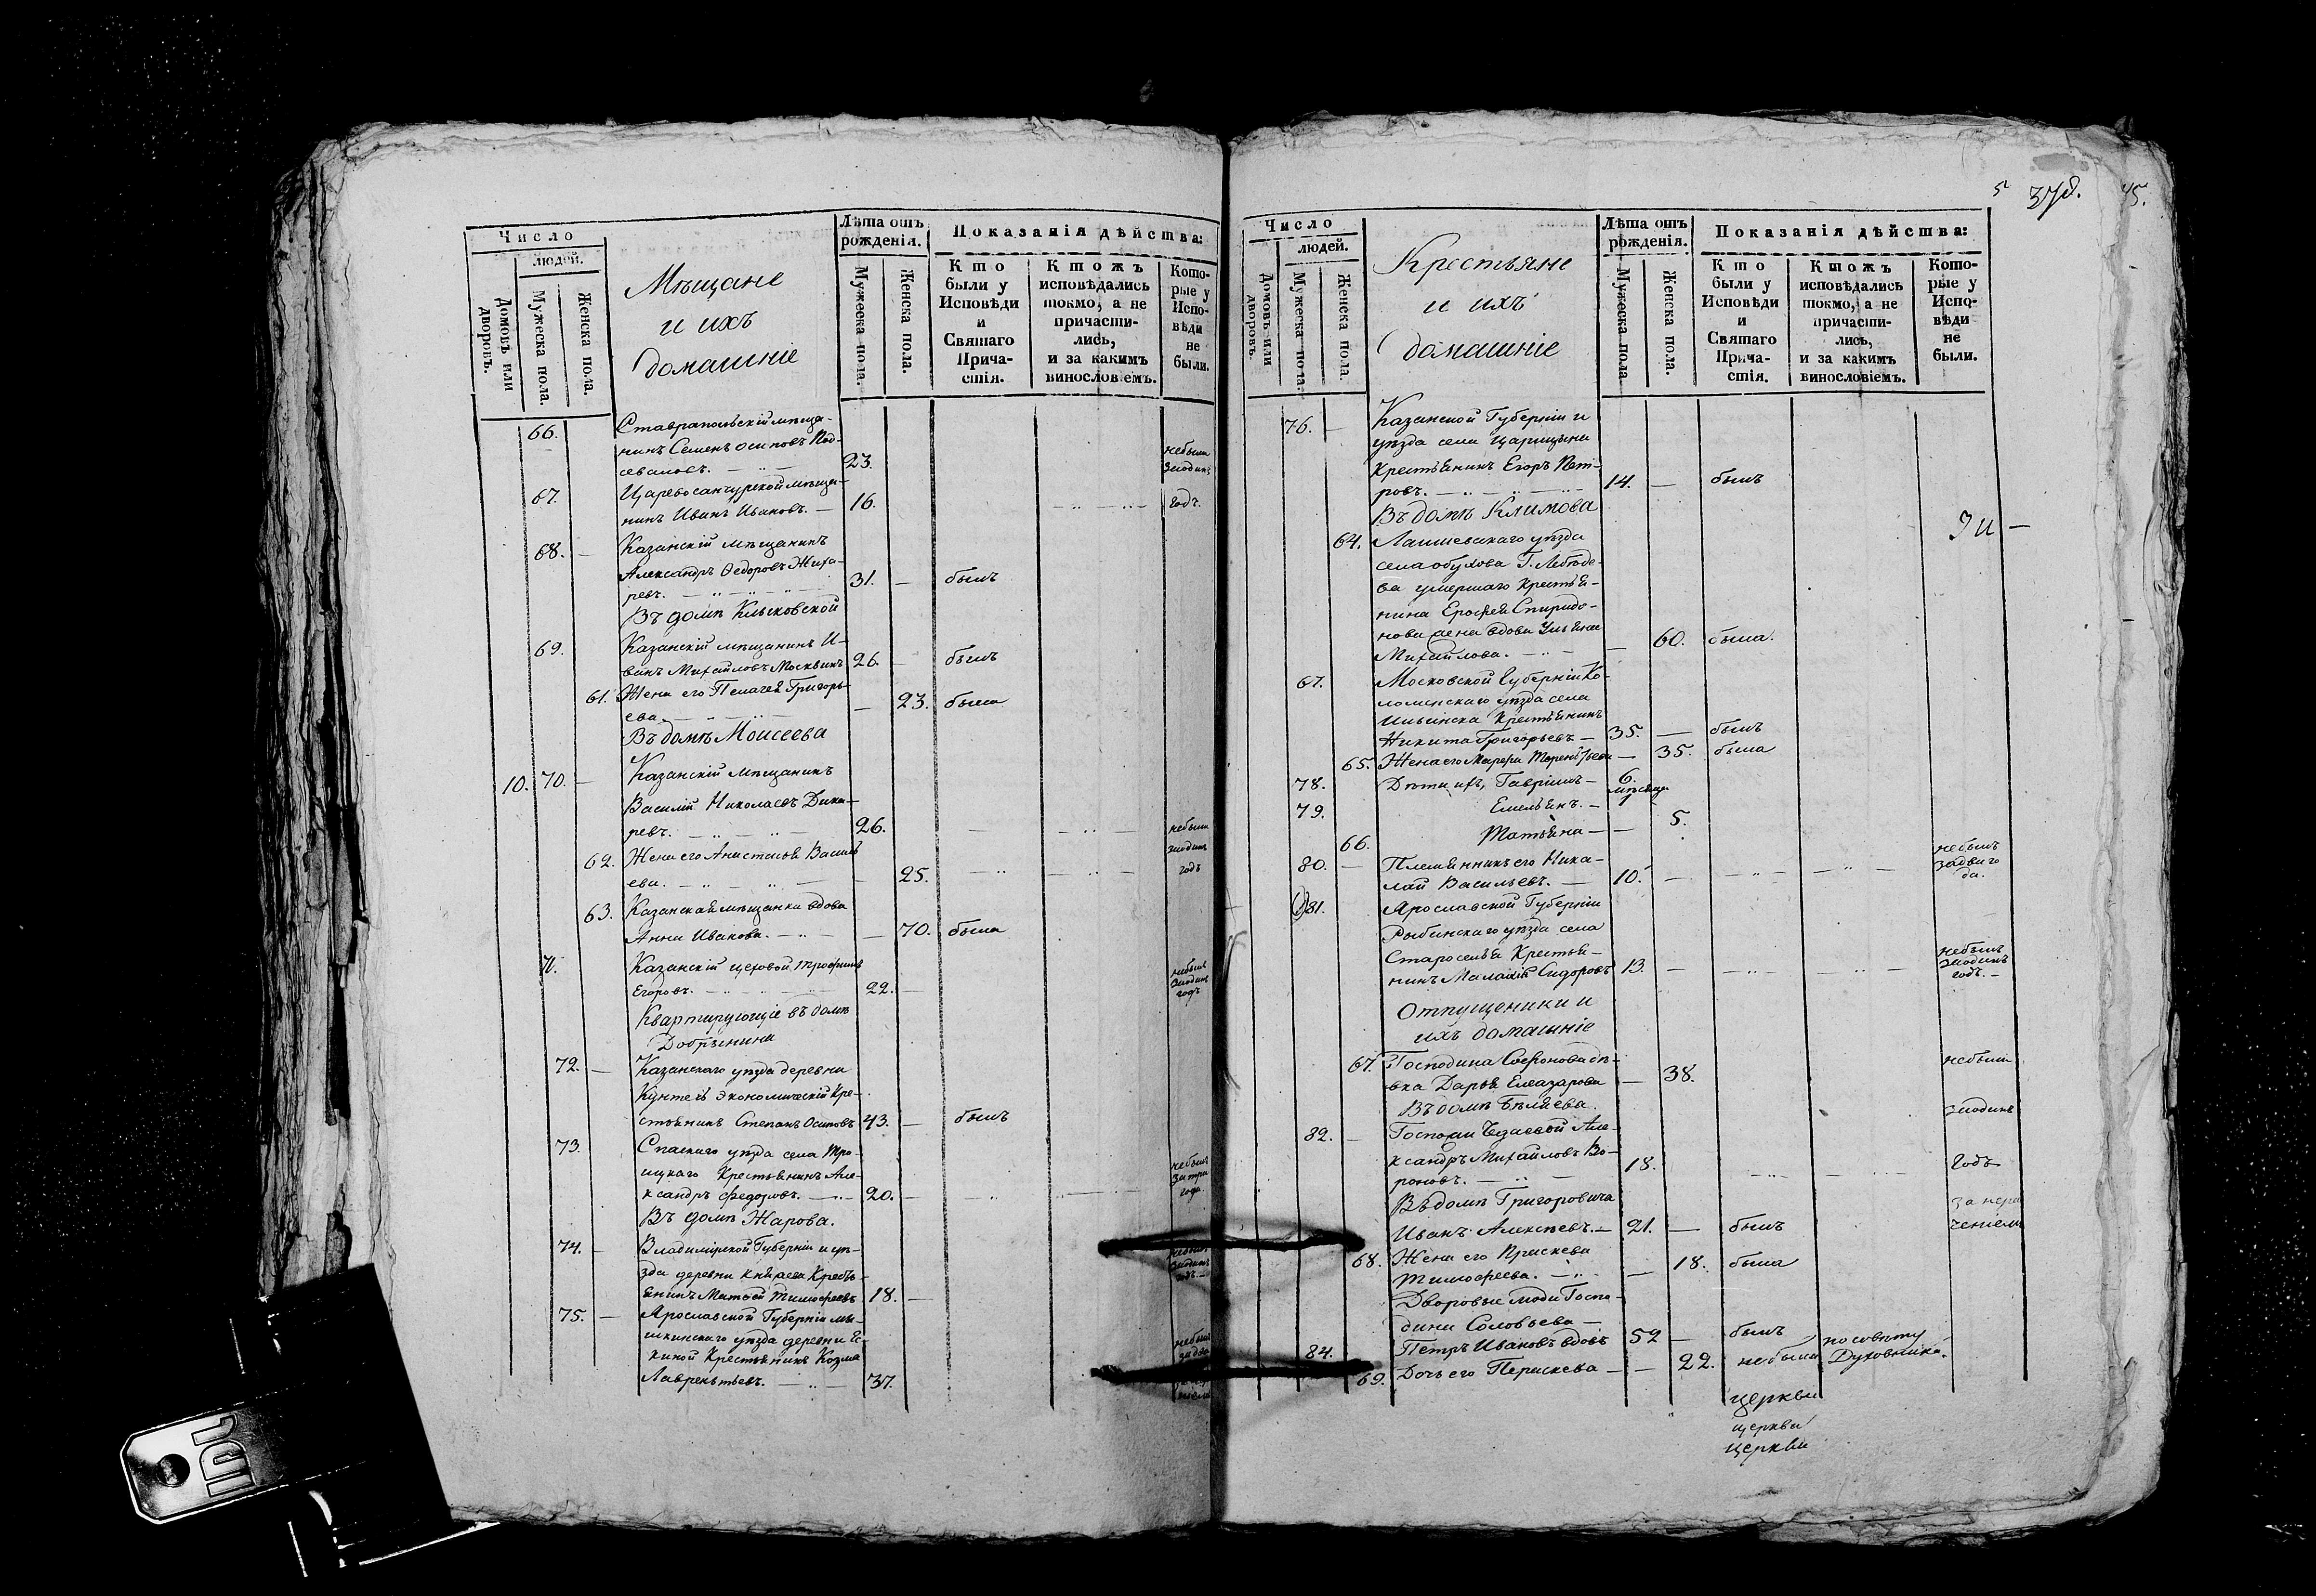 Число
людей.
Домовъ или дворовъ.
Мужеска пола.
Женска пола.
Мѣщане
и ихъ
домашніе
Лѣта отъ
рожденія.
Мужеска пола.
Женска пола.
Показанія дѣйства:
Кто
были у
Исповѣди
и
Святаго
Прича-
стія.
Ктожъ
исповѣдались
токмо, а не
причасти-
лись,
и за какимъ
винословіемъ.
Кото-
рые у
Испо-
вѣди
не
были.
66. Ставрапольскій мѣща-
нинъ Семенъ Осиповъ Под-
севаловъ. 23. небыли
заодинъ
67. Царевосанчурской мѣща-
нинъ Иванъ Ивановъ. 16. годъ.
68. Казанскій мѣщанинъ
Александръ Ѳедоровъ Жиха-
ревъ. 31. былъ
Въ домѣ Клыковской
69. Казанскій мѣщанинъ И-
ванъ Михайловъ Москвинъ 26. былъ
61. Жена его Пелагея Григорь-
ева. 23. была
Въ домѣ Моисеева
10. 70. Казанскій мѣщанинъ
Василій Николаевъ Дика-
ревъ. 26. небыли
заодинъ
62. Жена его Анастасья Василь
ева. 25. годъ
63. Казанская мѣщанка вдова
Анна Иванова. 70. была
71. Казанскій цеховой Трофимъ
Егоровъ. 22. небылъ
заодинъ
годъ
Квартирующіе въ домѣ
Добрынина
72. Казанскаго уѣзда деревни
экономическій Кре-
стьянинъ Степанъ Осиповъ 43. былъ
73. Спаскаго уѣзда села Тро-
ицкаго Крестьянинъ Але-
ксандръ Федоровъ. 20. небылъ
затри
года.
Въ домѣ Жарова.
74. Владимірской Губерніи и уѣ-
зда деревни Княева Кресть-
янинъ Матвей Тимофеевъ 18. заодинъ
годъ
75. Ярославской Губерніи мы-
шкинскаго уѣзда деревни Ес-
киной Крестьянинъ Козма
Лаврентьевъ. 37. небылъ
за два
5 378. 45.
Число
людей.
Домовъ или дворовъ.
Мужеска пола.
Женска пола.
Крестьяне
и ихъ
домашніе
Лѣта отъ
рожденія.
Мужеска пола
Женска пола.
Показанія дѣйства:
Кто
были у
Исповѣди
и
Святаго
Прича-
стія.
Ктожъ
исповѣдались
токмо, а не
причасти-
лись,
и за какимъ
винословіемъ.
Кото-
рые у
Испо-
вѣди
не
были.
76. Казанской Губерніи и
уѣзда села Царицына
Крестьянинъ Егоръ Пет-
ровъ. 14. былъ
Въ домѣ Климова
64. Лаишевскаго уѣзда
села обухова Г. Лебеде-
ва умершаго Крестья-
нина Ерофея Спиридо-
нова жена вдова Ульяна
Михайлова. 60. была.
67. Московской Губерніи Ко-
ломенскаго уѣзда села
Ильинска Крестьянинъ
Никита Григорьевъ 35. былъ
65. Жена его Марфа Терентьева 35. была
78. Дѣти ихъ, Гавріилъ 6.
мѣсяца
79. Емельянъ. 1
66. Татьяна 5.
80. Племянникъ его Ника-
лай Васильевъ. 10. небылъ
задва го
да.
81. Ярославской Губерніи
Рыбинскаго уѣзда села
Староселья Крестья-
нинъ Малахій Сидоровъ 13. небылъ
заодинъ
годъ.
Отпущеники и
ихъ домашніе
67. Господина Софонова дѣ-
вка Дарья Елеазарова 38. небыли
Въ домѣ Бѣляева. заодинъ
82. Госпожи Чедаевой Але-
ксандръ Михайловъ Во-
роновъ. 18. Годъ
Въ домѣ Григоровича
Иванъ Алексѣевъ. 21. былъ
68. Жена его Праскева
Тимофеева. 18. была
Дворовые люди Госпо-
дина Соловьева
84. Петръ Ивановъ вдовъ 52 былъ
69. Дочь его Перискева 22. небыли по совѣту
Духовника.
церкви
церкви
церкви